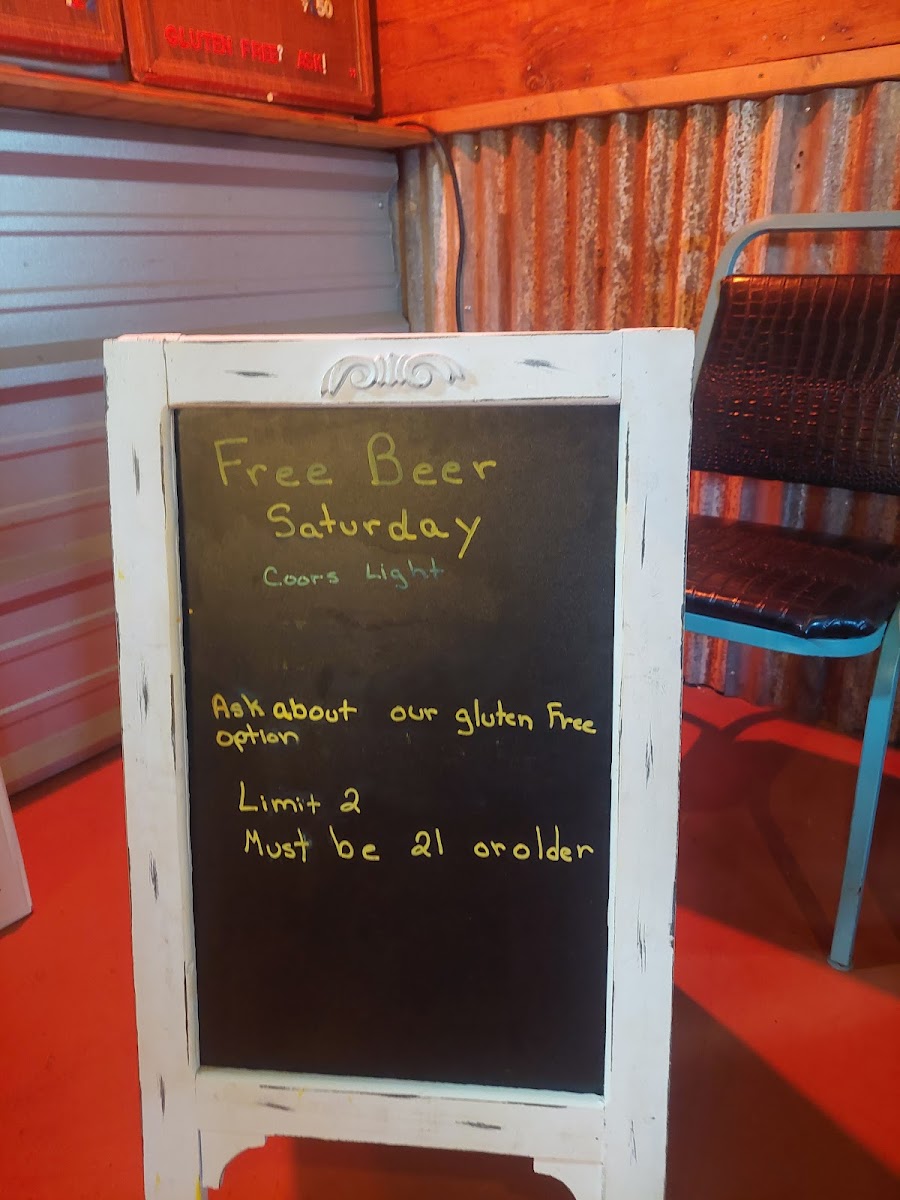 GLUTEN FREE? ASK!
Free Beer
Saturday
Coors Light
Ask about our gluten Free
option
Limit 2
Must be 21 or older